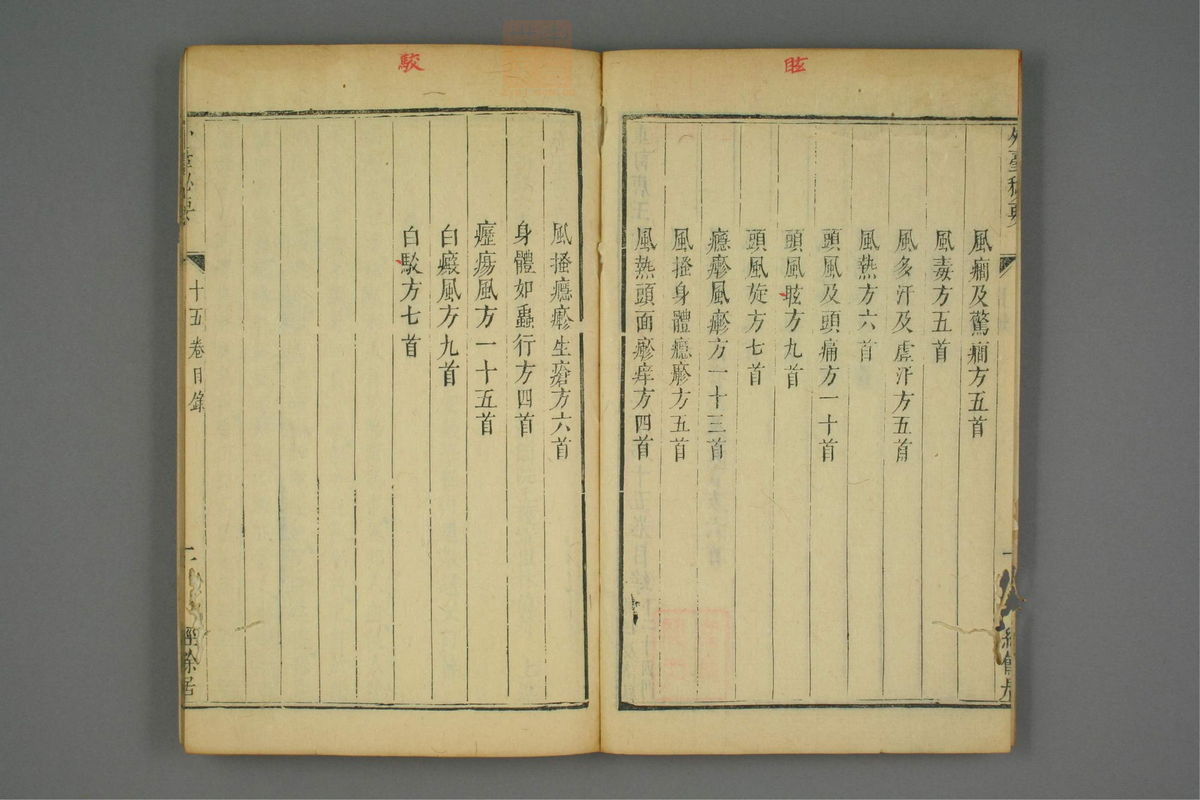 眩
外臺秘要
風癇及驚癇方五首
風毒方五首
風多汗及虛汗方五首
風熱方六首
頭風及頭痛方一十首
頭風眩方九首
頭風旋方七首
癮瘮風瘮方一十三首
風搔身體癮瘮方五首
風熱頭面瘮痒方四首
經餘居
駮
風搔癮瘮生瘡方六首
身體如蟲行方四首
癧瘍風方一十五首
白癜風方九首
白駮方七首
十五卷目錄
經餘居